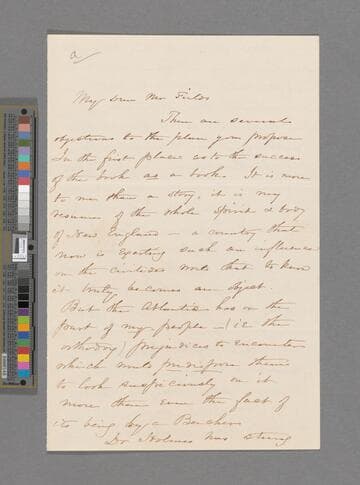 a
My dear Mr Fields
There are several
objections to the plan you propose
In the first place as to the success
of the book as a book. It is more
to me than a story, it is my
resumé of the whole spirit & body
of New England — a country that
now is exerting such an influence
on the civilized world that to know
it truly becomes an object.
But the Atlantic has on the
part of my people — (i e the
orthodox) prejudices to encounter
which would predispose them
to look suspiciously on it
more than even the fact of
its being by a Beecher
Dr Holmes has stung